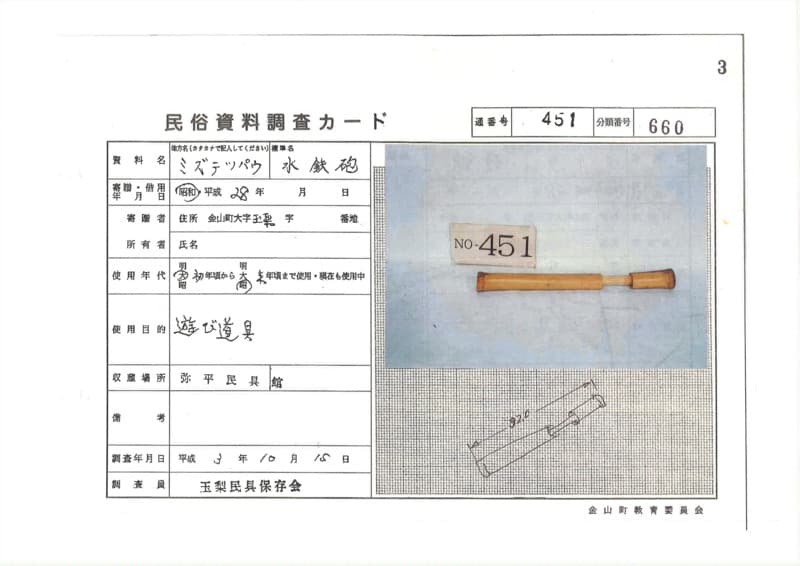 3
民俗資料調査カード
通番号 451 分類番号 660
資料名 地方名(カタカナで記入してください) ミズテツパウ 標準名 水鉄砲
寄贈・借用年月日 昭和 平成 28年 月 日
寄贈者 住所 金山町大字玉梨 字 番地
所有者 氏名
使用年代 明大昭 初年頃から 明大昭 末年頃まで使用・現在も使用中
使用目的 遊び道具
収蔵場所 弥平民具館
備考
調査年月日 平成 3年 10月 15日
調査員 玉梨民具保存会
NO-451
92.0
金山町教育委員会